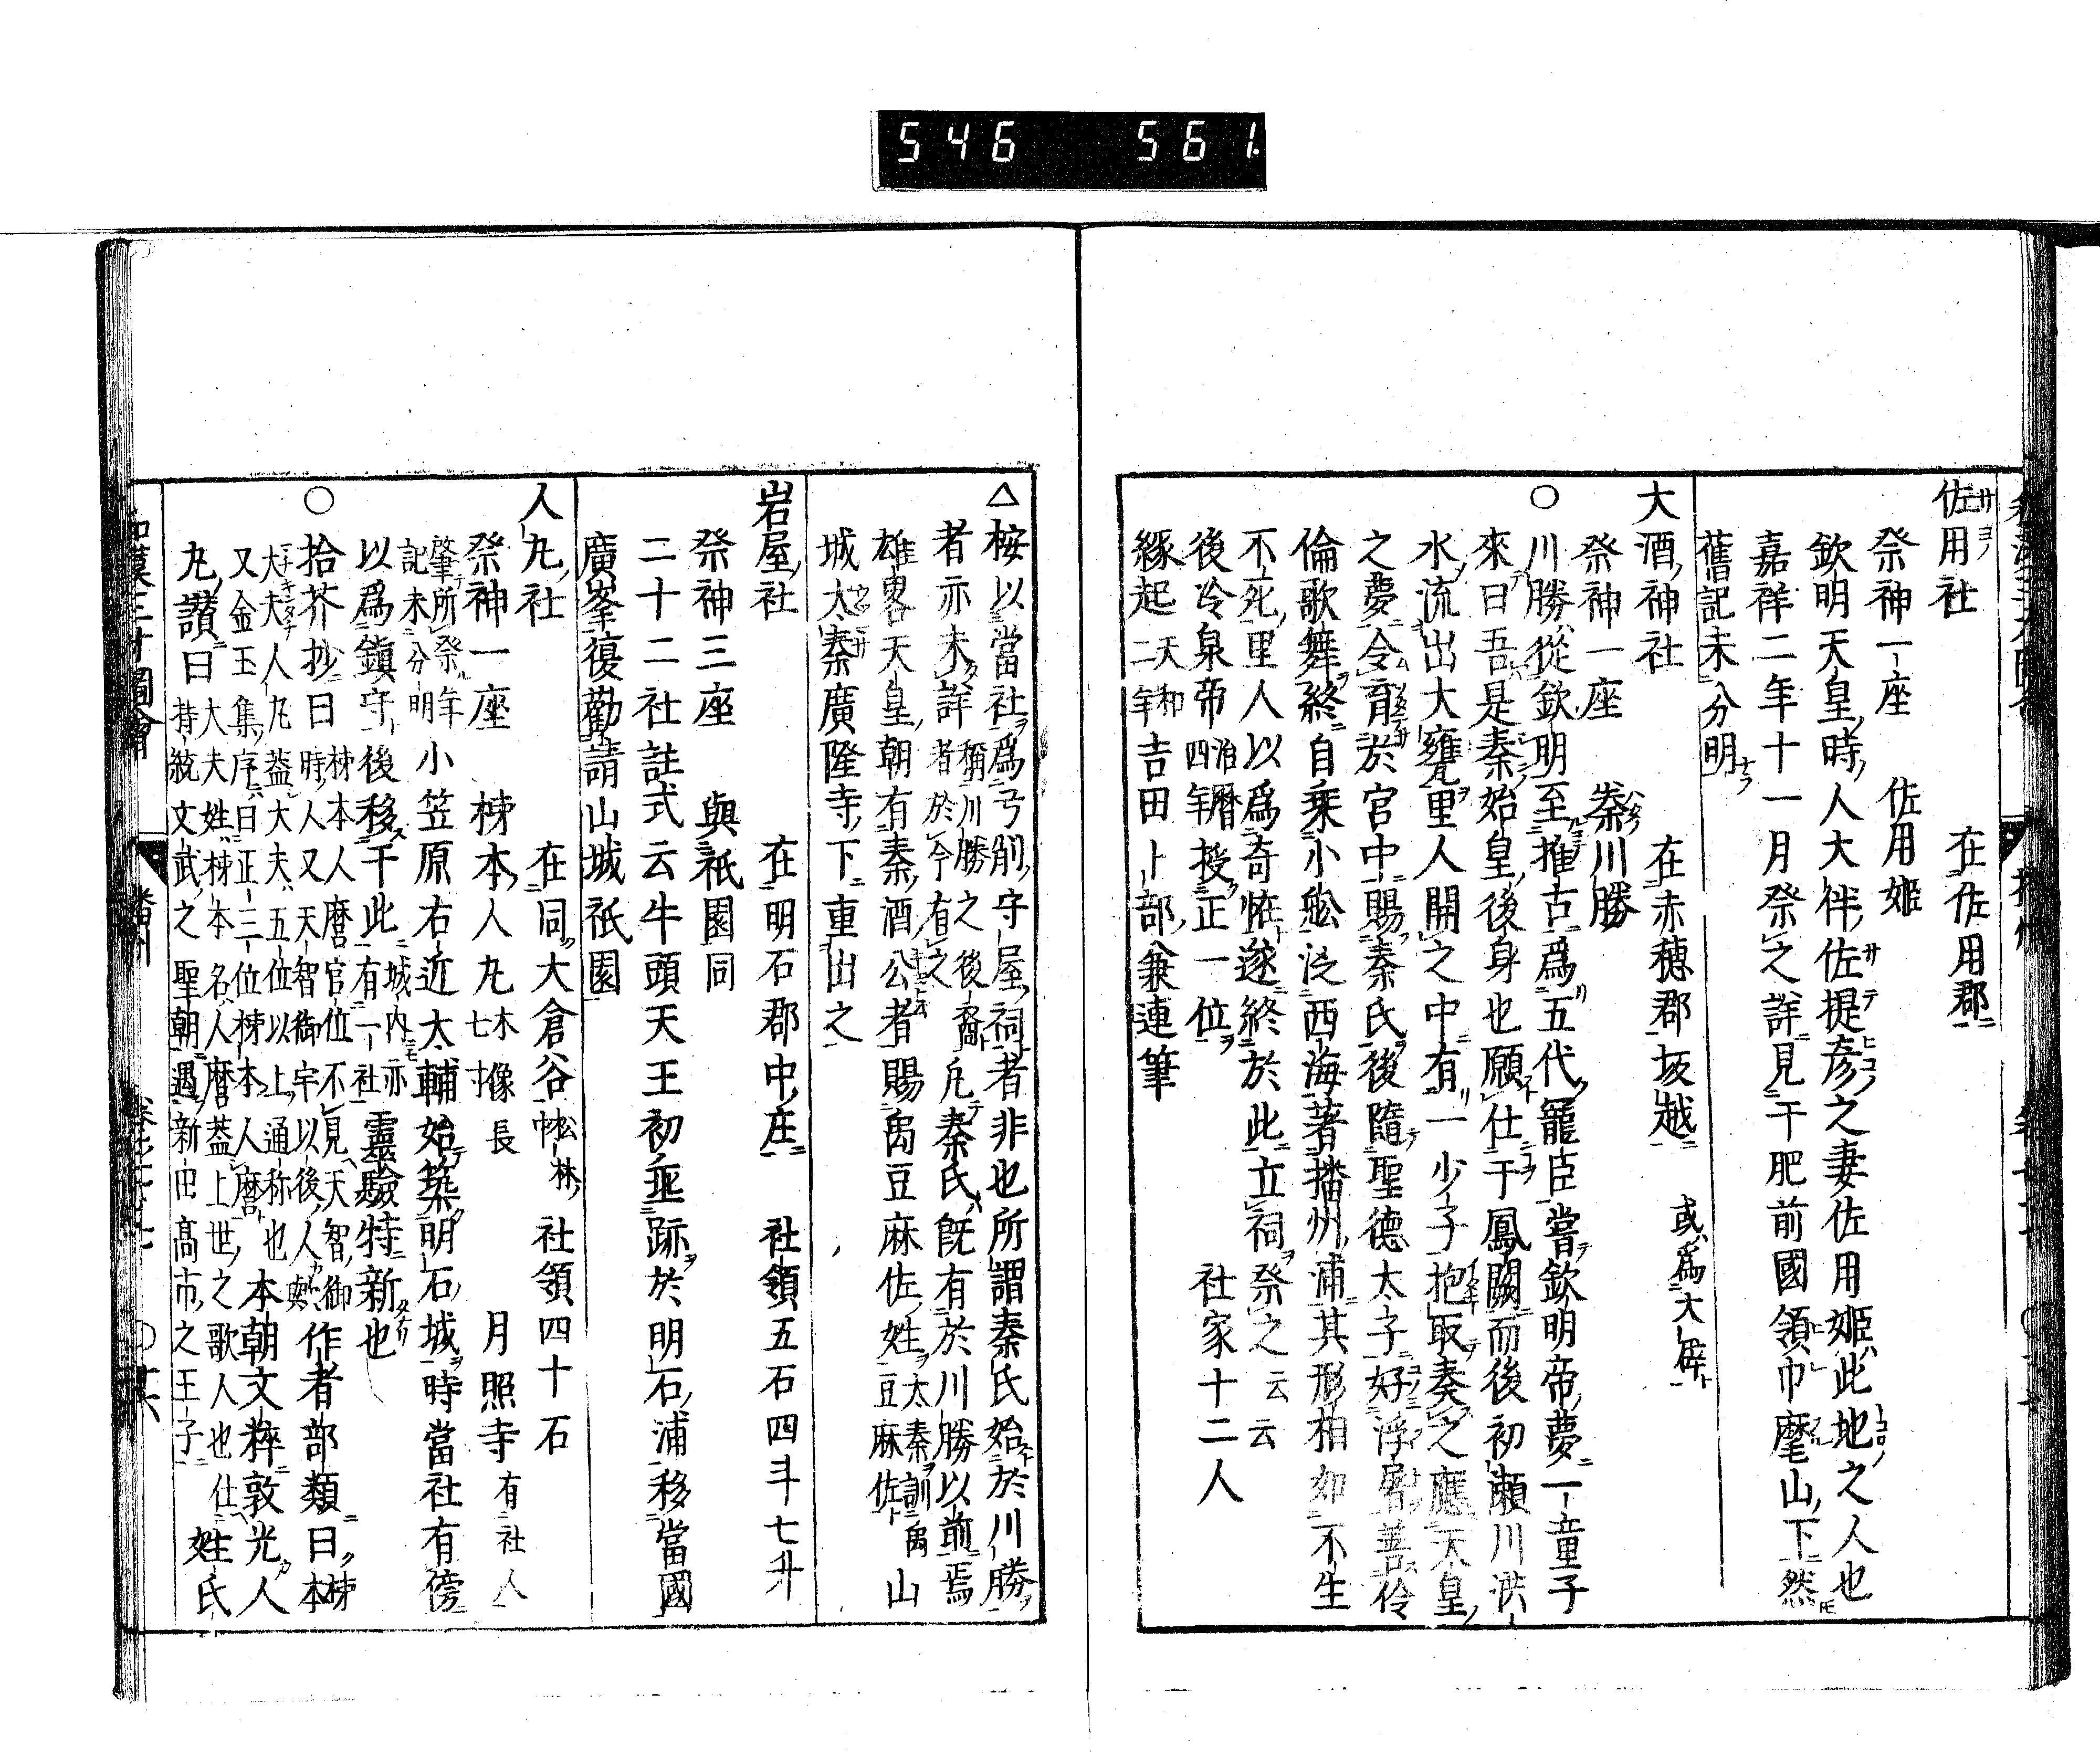 546 561
佐用社 在佐用郡
祭神一座 佐用姬
欽明天皇時人大伴佐提彦之妻佐用姬此地之人也
嘉祥二年十一月祭之詳見于肥前國領巾麾山下然
舊記未分明
大酒神社 在赤穗郡坂越 或爲大辟
祭神一座 秦川勝
○川勝從欽明至推古爲五代寵臣嘗欽明帝夢一童子
來曰吾是秦始皇後身也願仕于鳳闕而後初瀬川洪
水流出大甕里人開之中有一少子抱取奏之應天皇
之夢令育於宮中賜秦氏後隨聖德太子好浮屠善伶
倫歌舞終自乘小舩泛西海著播州浦其形相如不生
不死里人以爲奇恠遂終於此立祠祭之云云
後冷泉帝治曆四年授正一位 社家十二人
緣起天和二年吉田卜部兼連筆
△桉以當社爲弓削守屋祠者非也所謂秦氏始於川勝
者亦未詳稱川勝之後裔者於今有之凡秦氏旣有於川勝以前焉
雄畧天皇朝有秦酒公者賜禹豆麻佐姓太秦訓禹豆麻佐山
城太秦廣隆寺下重出之
岩屋社 在明石郡中庄 社領五石四斗七升
祭神三座 與祇園同
二十二社註式云牛頭天王初垂跡於明石浦移當國
廣峯復勸請山城祇園
人丸社 在同大倉谷松林中 社領四十石
祭神一座 柹本人丸木像長七寸 月照寺有社人
肇所祭年記未分明小笠原右近太輔始築明石城時當社有傍
以爲鎭守後移于此城内亦有一社靈驗特新也
○拾芥抄曰柹本人麿官位不見天智御時人又天智御宇以後人與作者部類曰柹本
大夫人丸蓋大夫五位以上通称也本朝文粹敦光人
又金玉集序曰正三位柹本人麿
丸讚曰大夫姓柹本名人麿蓋上世之歌人也仕持統文武之聖朝遇新田髙市之王子姓氏
和漢三才圖會